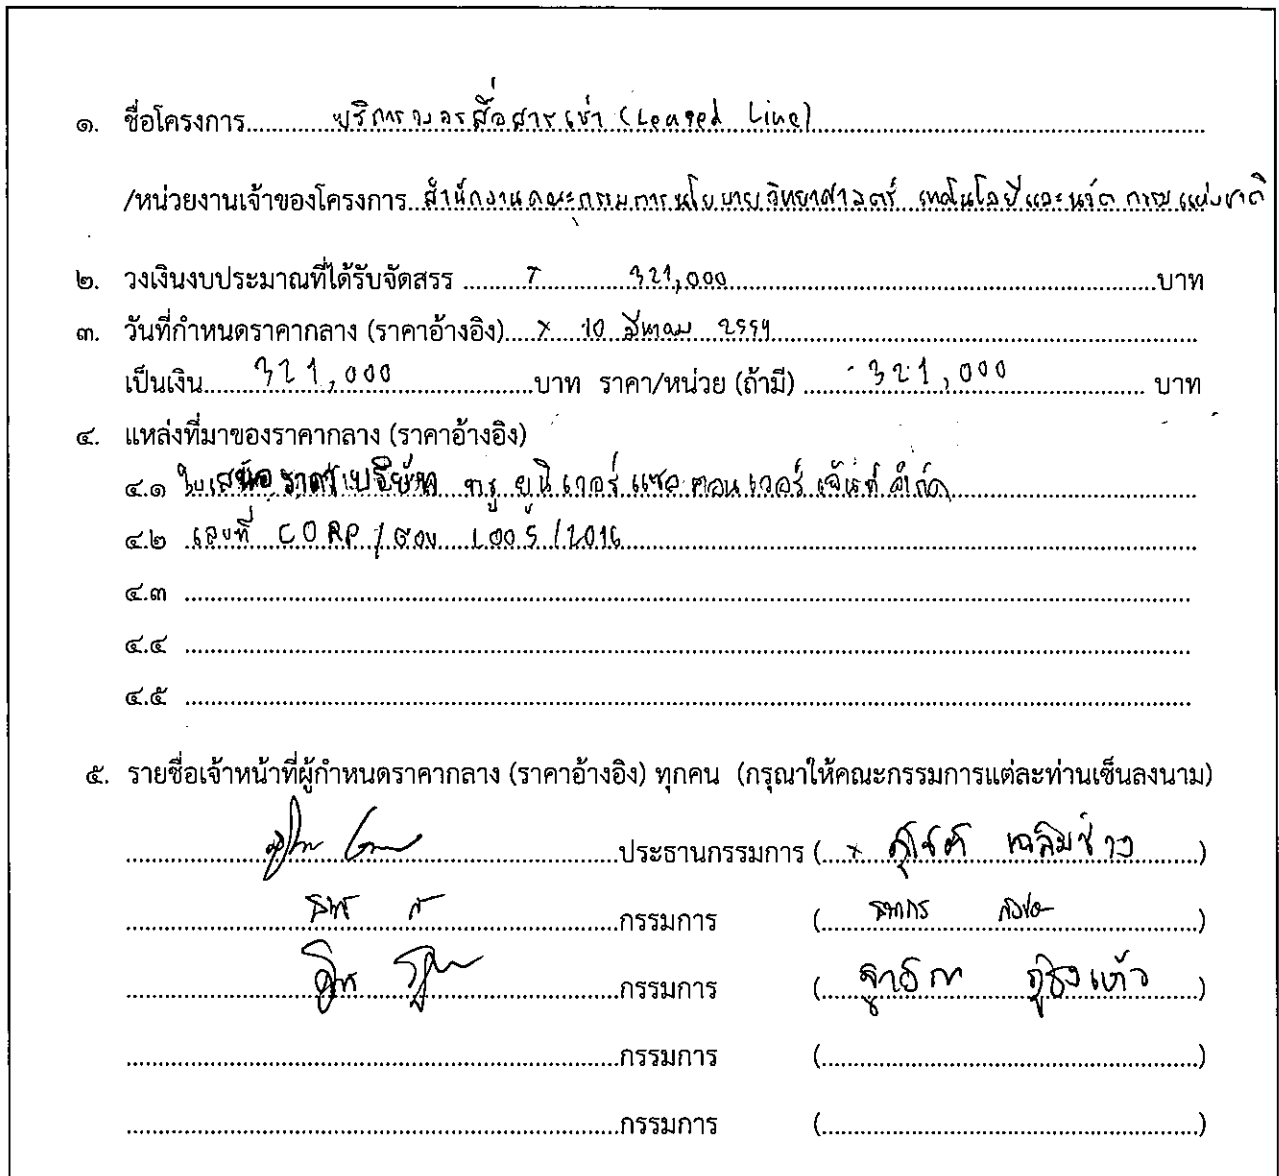 ๑. ชื่อโครงการ บริการวงจรสื่อสารเช่า (Leased Line)
/หน่วยงานเจ้าของโครงการ สำนักงานคณะกรรมการนโยบายวิทยาศาสตร์ เทคโนโลยีและนวัตกรรมแห่งชาติ
๒. วงเงินงบประมาณที่ได้รับจัดสรร 321,000 บาท
๓. วันที่กำหนดราคากลาง (ราคาอ้างอิง) 10 มีนาคม 2559
เป็นเงิน 321,000 บาท ราคา/หน่วย (ถ้ามี) 321,000 บาท
๔. แหล่งที่มาของราคากลาง (ราคาอ้างอิง)
๔.๑ ใบเสนอราคา บริษัท ทรู ยูนิเวอร์แซล คอนเวอร์เจ้นซ์ จำกัด
๔.๒ เลขที่ CORP/GOV 1005/2016
๔.๓
๔.๔
๔.๕
๕. รายชื่อเจ้าหน้าที่ผู้กำหนดราคากลาง (ราคาอ้างอิง) ทุกคน (กรุณาให้คณะกรรมการแต่ละท่านเซ็นลงนาม)
ประธานกรรมการ ( เฉลิมช่าง )
กรรมการ ( )
กรรมการ ( )
กรรมการ ( )
กรรมการ ( )